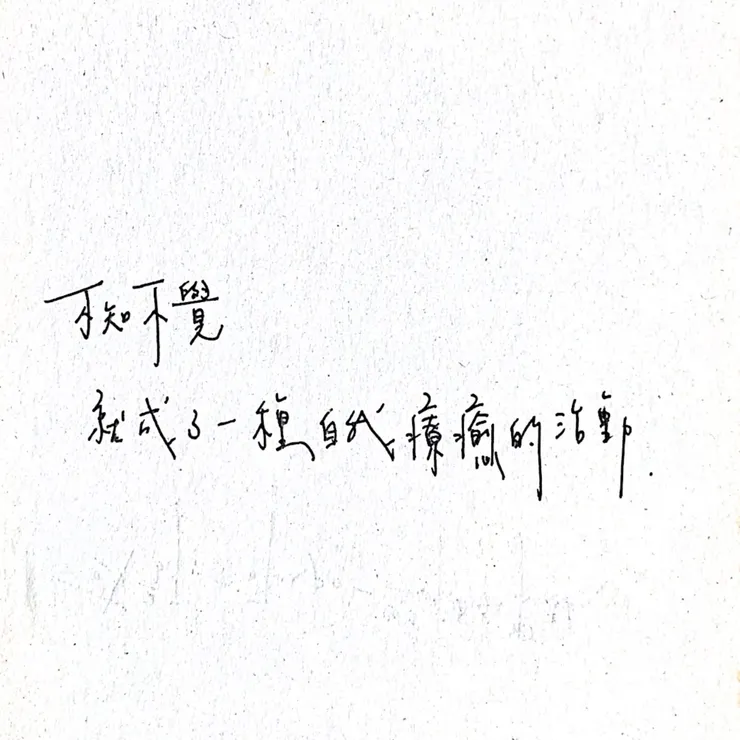 不知不覺
就成了一種自我療癒的活動.